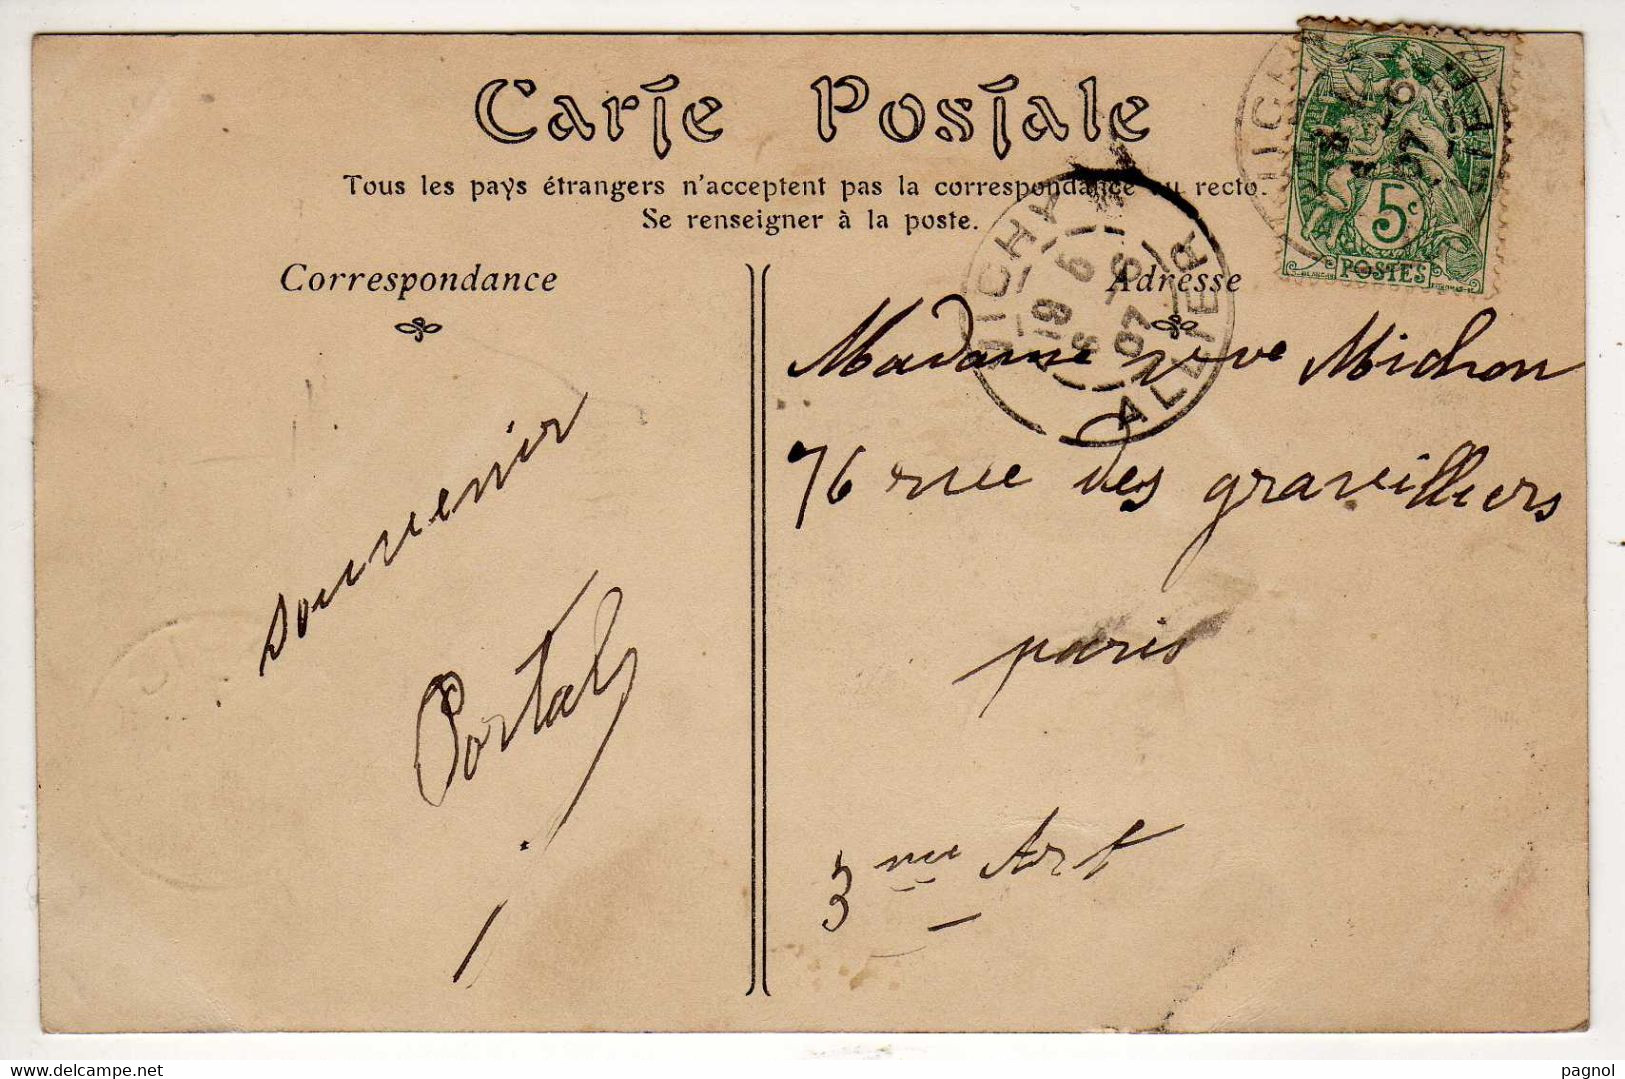 Carte Postale
Tous les pays étrangers n'acceptent pas la correspondance au recto.
Se renseigner à la poste.
Correspondance
Adresse
souvenir
Portal
Madame veve Michon
76 rue des graveilliers
paris
3me Art
VICHY
ALLIER
6
07
VICHY
6
07
5c
POSTES
pagnol